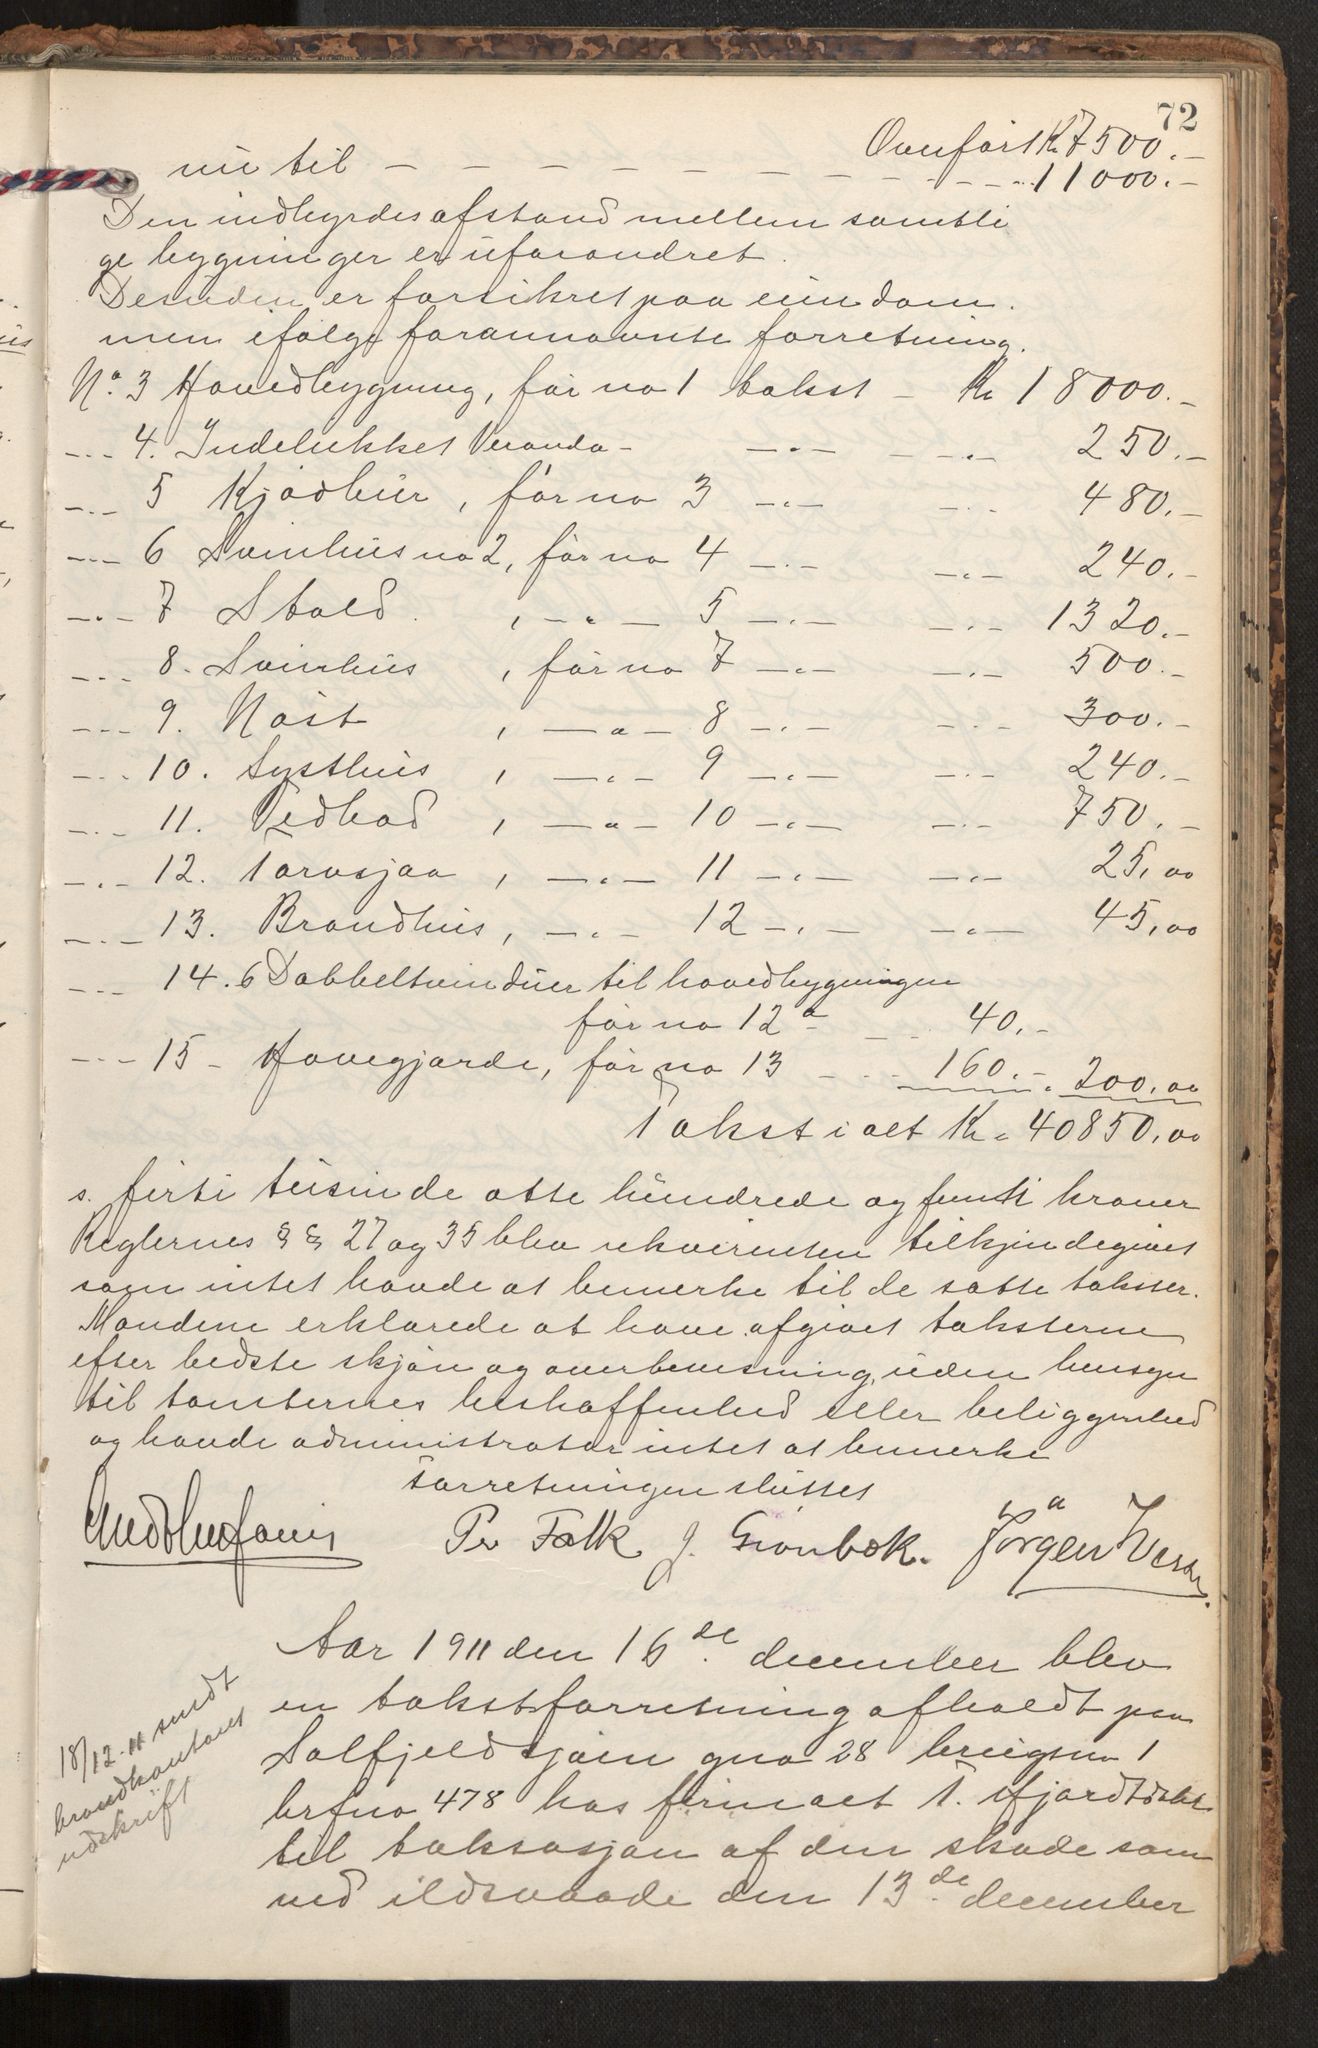 72
Overført Kr 7500.-
nu til - - - - - - - - - - - 11000.-
Den indbyrdes afstand mellem samtli
ge bygninger er uforandret.
Desuden er forsikret paa eiendom.
men ifølge forannævnte forretning.
No. 3 Hovedbygning, før no 1 takst - Kr 18000.-
-"- 4. Indelukket Veranda - -"- - -"- 250.-
-"- 5 Kjødbur, før no 3 -"- -"- 480.-
-"- 6 Svinhus no 2, før no 4 -"- -"- 240.-
-"- 7 Stald. , -"- 5 -"- -"- 1320.-
-"- 8. Svinhus , før no 7 -"- -"- 500.-
-"- 9. Nøst , -"- 8 -"- -"- 300.-
-"- 10. Lysthus , -"- 9 -"- -"- 240.-
-"- 11. Vedbod , -"- 10 -"- -"- 750.-
-"- 12. Torvsjaa , -"- 11 -"- -"- 25,00
-"- 13. Brandhus, -"- 12 -"- -"- 45,00
-"- 14. 6 Dobbeltvinduer til hovedbygningen
før no 12a - - - 40.-
-"- 15 - Havegjærde, før no 13 - - - 160.- " 200,00
Takst i alt Kr. 40850,00
s. førti tusinde otte hundrede og femti kroner
Reglernes §§ 27 og 35 blev rekvirenten tilkjendegivet
som intet havde at bemerke til de satte takster.
Mændene erklærede at have afgivet taksterne
efter bedste skjøn og overbevisning, uden hensyn
til tomternes beskaffenhed eller beliggenhed
og havde administrator intet at bemerke
Forretningen sluttet
Per Falk J. Grønbæk. Jørgen
Aar 1911 den 16de december blev
en takstforretning afholdt paa
Solfjeldsjøen gno 28 brugsno 1
brfno 478 hos firmaet T. Ifjord
til taksasjon af den skade som
ved ildsvaade den 13de december
18/12-11 sendt
brandkontoret
udskrift